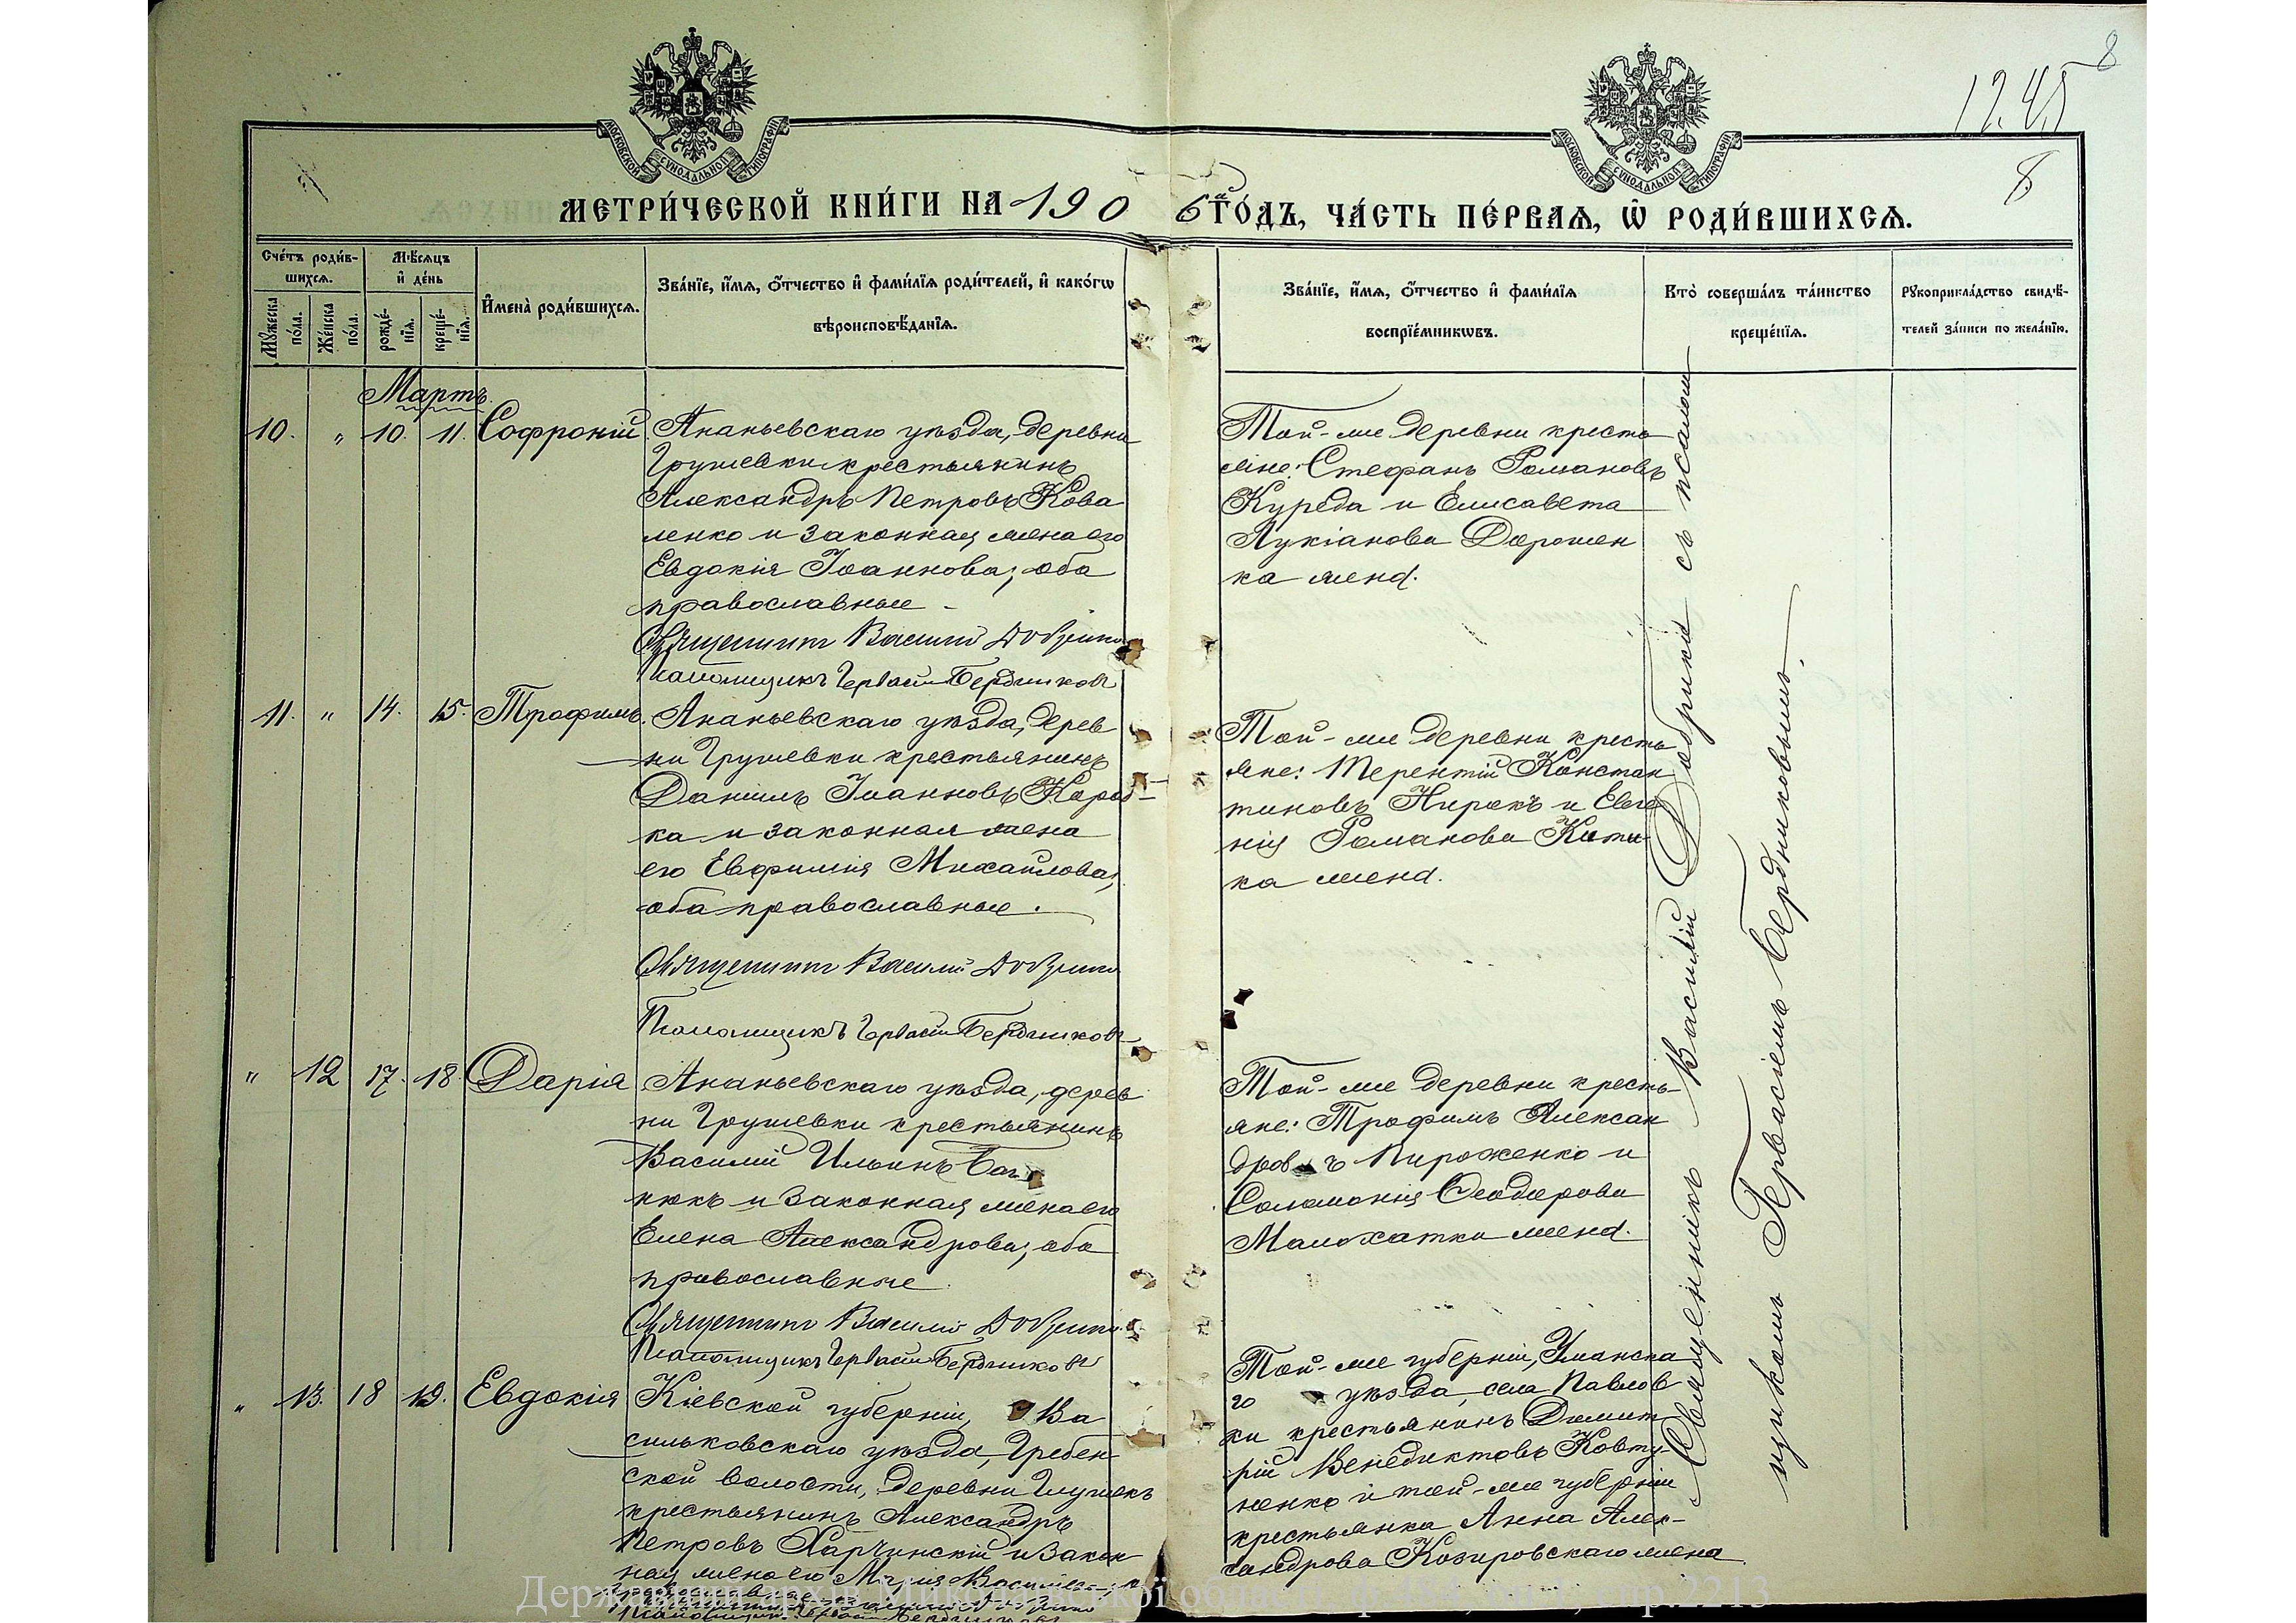 8
12.45
8.
МОСКОВСКОЙ СѴНОДАЛЬНОЙ ТИПОГРАФІИ
МОСКОВСКОЙ СѴНОДАЛЬНОЙ ТИПОГРАФІИ
МЕТРИ́ЧЕСКОЙ КНИ́ГИ НА 190 6 ГО́ДЪ, ЧА́СТЬ ПЕ́РВАѦ, Ѡ҆ РОДИ́ВШИХСѦ.
Сче́тъ роди́в-
шихсѧ.
Мꙋ́жеска по́ла.
Же́нска по́ла.
Мѣ́сѧцъ
и҆ де́нь
рожде́-
нїѧ.
креще́-
нїѧ.
И҆мена̀ роди́вшихсѧ.
Зва́нїе, и҆́мѧ, ѻ҆́тчество и҆ фами́лїѧ роди́телей, и҆ како́гѡ
вѣроисповѣ́данїѧ.
Зва́нїе, и҆́мѧ, ѻ҆́тчество и҆ фами́лїѧ
воспрїе́мникѡвъ.
Кто̀ соверша́лъ та́инство
креще́нїѧ.
Рꙋкоприкла́дство свидѣ́-
телей за́писи по жела́нїю.
Мартъ.
10. " 10. 11. Софроній. Ананьевскаго уѣзда, деревни
Грушевки крестьянинъ
Александръ Петровъ Кова
ленко и законная жена его
Евдокія Іоаннова; оба
православные
Священникъ Василій Добрицкій
Псаломщикъ Гервасій Бердниковъ
Той-же деревни кресть
яне: Стефанъ Романовъ
Куреда и Елисавета
Лукіанова Дорошен
ка жена.
11. " 14. 15. Трофимъ. Ананьевскаго уѣзда, дерев
ни Грушевки крестьянинъ
Даніилъ Іоанновъ Корот-
ка и законная жена
его Евфимія Михайлова,
оба православные.
Священникъ Василій Добрицкій
Псаломщикъ Гервасій Бердниковъ
Той-же деревни кресть
яне: Терентій Констан
тиновъ Нирокъ и Евге
нія Романова
ка жена.
" 12 17. 18. Дарія Ананьевскаго уѣзда, дерев
ни Грушевки крестьянинъ
Василій Ильинъ
нюкъ и законная жена его
Елена Александрова; оба
православные.
Священникъ Василій Добрицкій
Псаломщикъ Гервасій Бердниковъ
Той-же деревни кресть-
яне: Трофимъ Алексан
дровъ Пироженко и
Соломонія Ѳеодорова
Малохатка жена.
" 13. 18 19. Евдокія Кіевской губерніи, Ва
сильковскаго уѣзда, Гребен
ской волости, деревни Глушекъ
крестьянинъ Александръ
Петровъ Харчинскій и закон
ная жена его Марія
Той-же губерніи, Уманска
го уѣзда села Павлов
ки крестьянинъ Димит
рій Венедиктовъ Ковту
ненко и той-же губерніи
крестьянка Анна Алек-
сандрова Козировскаго жена.
Священникъ Василій Добрицкій съ псалом
щикомъ Гервасіемъ Бердниковымъ.